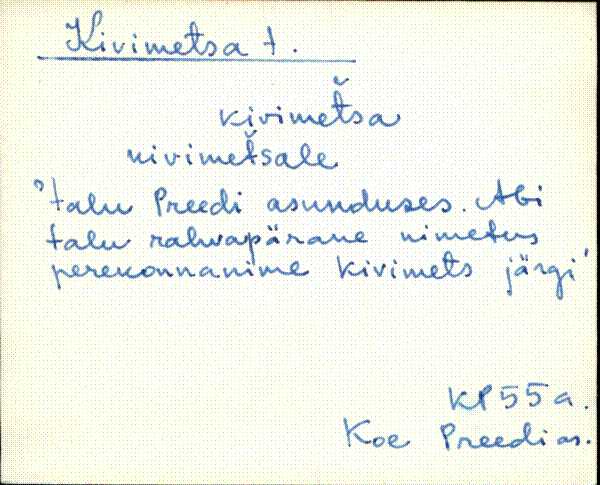 Kivimetsa t.
kivimet̆sa
kivimet̆sale
'talu Preedi asunduses. Abi
talu rahvapärane nimetus
perekonnanime Kivimets järgi'
KP 55 a.
Koe Preedi as.